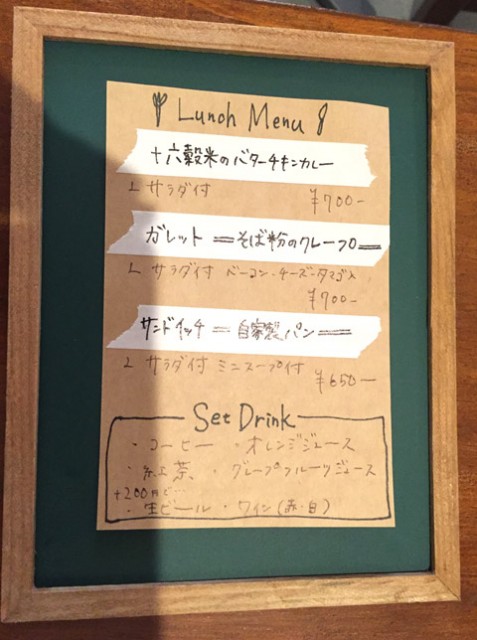 Lunch Menu
十六穀米のバターチキンカレー
サラダ付
¥700-
ガレット=そば粉のクレープ=
サラダ付 ベーコン・チーズ・タマゴ入
¥700-
サンドイッチ=自家製パン=
サラダ付 ミニスープ付
¥650-
Set Drink
・コーヒー ・オレンジジュース
・紅茶 ・グレープフルーツジュース
+200円で…
・生ビール ・ワイン(赤・白)